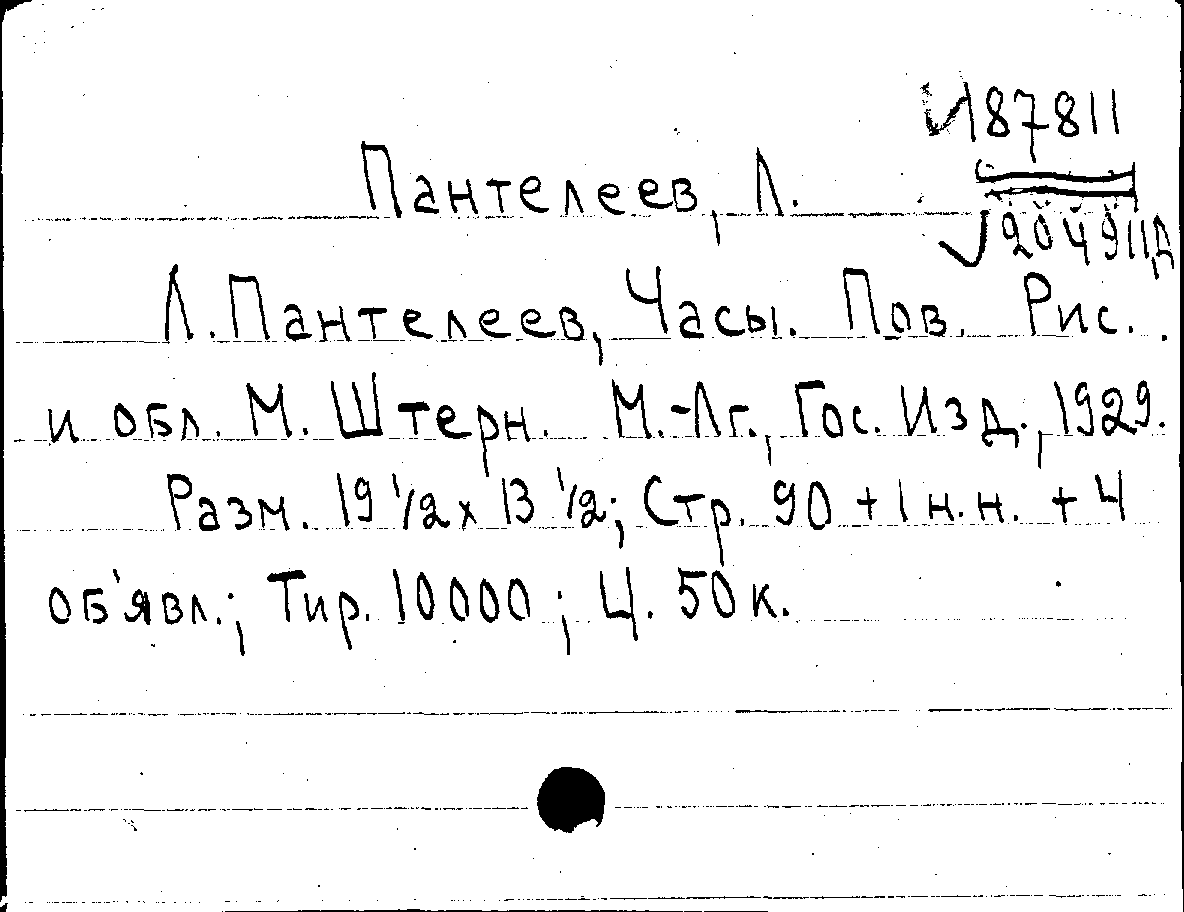 И87811
Пантелеев, Л.
√204911д
Л. Пантелеев, Часы. Пов. Рис.
и обл. М. Штерн. М.-Лг., Гос. Изд., 1929.
Разм. 19 1/2 x 13 1/2; Стр. 90 + 1 н.н. + 4
об'явл.; Тир. 10000; Ц. 50 к.